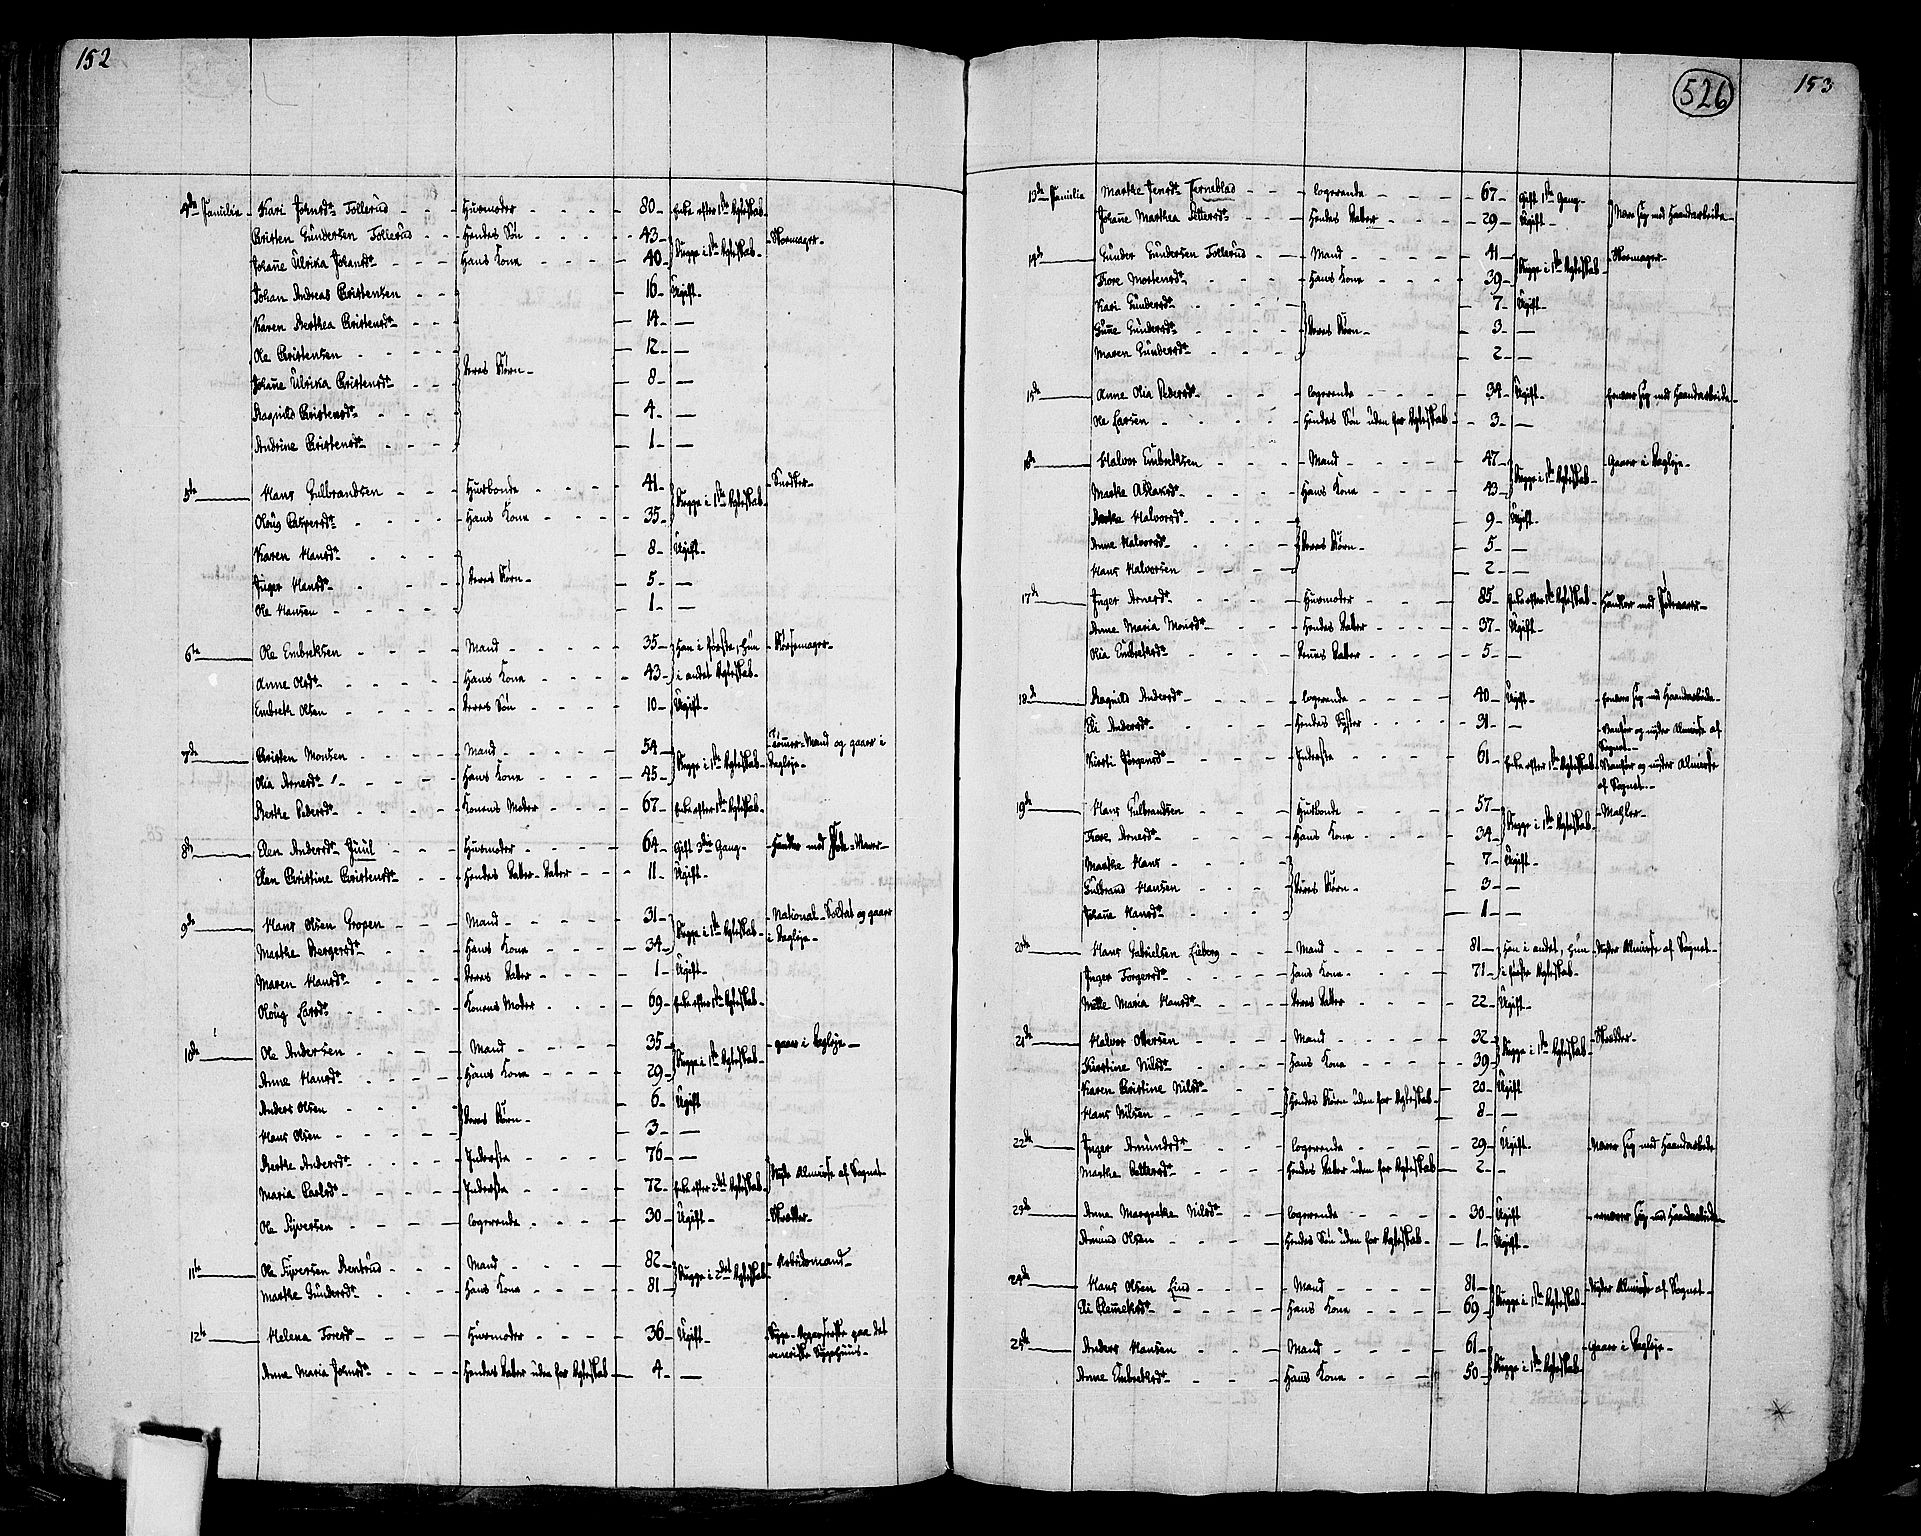 152
4de Familie - Kari Johnsdr Tollerud - Huusmoder - 80 - Enke efter 1ste Ægteskab
Christen Gundersen Tollerud - Hendes Søn - 43 - Begge i 1ste Ægteskab - Skoemager
Johanne Ulrika Johansdr - Hans Kone - 40
Johan Andreas Christensen - 16 - Ugift
Karen Berthea Christensdr - 14 - —
Ole Christensen - 12 - —
Johanne Ulrika Christensdr - Deres Børn - 8 - —
Ragnild Christensdr - 4 - —
Andrine Christensdr - 1 - —
5te - Hans Gulbrandsen - Husbonde - 41 - Begge i 1ste Ægteskab - Snedker
Oloug Caspersdr - Hans Kone - 35
Karen Hansdr - 8 - Ugift
Inger Hansdr - Deres Børn - 5 - —
Ole Hansen - 1 - —
6te - Ole Embretsen - Mand - 35 - Han i første, hun - Børsemager
Anne Olsdr - Hans Kone - 43 - i andet Ægteskab
Embret Olsen - Deres Søn - 10 - Ugift
7de - Christen Monsen - Mand - 54 - Begge i 1ste Ægteskab - Tømmer-Mand og gaaer i
Olia Arnesdr - Hans Kone - 45 - Dagleje
Berthe Pedersdr - Konens Moder - 67 - Enke efter 1ste Ægteskab
8de - Elen Andersdr Juul - Huusmoder - 64 - Gift 3die Gang - Handler med Føde-Varer
Elen Christine Christensdr - Hendes Datter-Datter - 11 - Ugift
9de - Hans Olsen Gropen - Mand - 31 - Begge i 1ste Ægteskab - National-Soldat og gaaer
Marthe Bergersdr - Hans Kone - 34 - i Dagleje
Maren Hansdr - Deres Datter - 1 - Ugift
Oloug Larsdr - Konens Moder - 69 - Enke efter 1ste Ægteskab
10de - Ole Andersen - Mand - 35 - Begge i 1ste Ægteskab - gaaer i Dagleje
Anne Hansdr - Hans Kone - 29
Anders Olsen - Deres Børn - 6 - Ugift
Hans Olsen - 3 - —
Berthe Andersdr - Inderste - 76 - —
Maria Carlsdr - Inderste - 72 - Enke efter 2det Ægteskab - Nyder Almisse af Sognet
Ole Syversen - logerende - 30 - Ugift - Skrædder
11te - Ole Syversen Bentrud - Mand - 82 - Begge i 2det Ægteskab - Arbeidsmand
Marthe Gundersdr - Hans Kone - 81
12te - Helena Toresdr - Huusmoder - 36 - Ugift - Syge-Opvarterske paa det
veneriske Sygehuus
Anne Maria Johnsdr - Hendes Datter uden for Ægteskab - 4 - —
526
153
13de Familie - Marthe Jensdr Ferneblad - logerende - 67 - Gift 1ste Gang
Johanne Marthea Pettersdr - Hendes Datter - 29 - Ugift - Nærer sig med Haandarbeide
14de - Gunder Gundersen Tollerud - Mand - 41 - Begge i 1ste Ægteskab - Skoemager
Tore Mortensdr - Hans Kone - 39
Kari Gundersdr - 7 - Ugift
Gunne Gundersdr - Deres Børn - 3 - —
Maren Gundersdr - 2 - —
15de - Anne Olia Pedersdr - logerende - 34 - Ugift - Ernærer sig med Haandarbeide
Ole Larsen - Hendes Søn uden for Ægteskab - 3 - —
16de - Halvor Embretsen - Mand - 47 - Begge i 1ste Ægteskab - Gaaer i Dagleje
Marthe Aslaksdr - Hans Kone - 43
Berthe Halvorsdr - 9 - Ugift
Anne Halvorsdr - Deres Børn - 5 - —
Hans Halvorsen - 2 - —
17de - Inger Arnesdr - Huusmoder - 85 - Enke efter 1ste Ægteskab - Handler med Fødevarer
Anne Maria Monsdr - Hendes Datter - 37 - Ugift
Olia Embretsdr - Dennes Datter - 5 - —
18de - Ragnild Andersdr - logerende - 40 - Ugift - Ernærer sig med Haandarbeide
Eli Andersdr - Hendes Syster - 31 - — - Vanfør og nyder Almisse af
Sognet
Kirsti Jørgensdr - Inderste - 61 - Enke efter 1ste Ægteskab - Vanfør og nyder Almisse
af Sognet
19de - Hans Gulbrandsen - Husbonde - 57 - Begge i 1ste Ægteskab - Mahler
Tore Arnesdr - Hans Kone - 34
Marthe Hans - 7 - Ugift
Gulbrand Hansen - Deres Børn - 3 - —
Johanne Hansdr - 1 - —
20de - Hans Gabrielsen Lieberg - Mand - 81 - Han i andet, hun - Nyder Almisse af Sognet
Inger Torgersdr - Hans Kone - 71 - i første Ægteskab
Mette Maria Hansdr - Deres Datter - 22 - Ugift
21de - Halvor Ottersen - Mand - 32 - Begge i 1ste Ægteskab - Skrædder
Kirstine Nilsdr - Hans Kone - 39
Karen Christine Nilsdr - Hendes Børn uden for Ægteskab - 20 - Ugift
Hans Nilsen - 8 - —
22de - Inger Amundsdr - logerende - 29 - Ugift - Nærer sig med Haandarbeide
Marthe Pettersdr - Hendes Datter uden for Ægteskab - 2 - -
23de - Anne Margrethe Nilsdr - logerende - 30 - Ugift - Ernærer sig med Haandarbeide
Amund Olsen - Hendes Søn uden for Ægteskab - 1 - Ugift
24de - Hans Olsen Lind - Mand - 81 - Begge i 1ste Ægteskab - Nyder Almisse af Sognet
Eli Clemetsdr - Hans Kone - 69
25de - Anders Hansen - Mand - 61 - Begge i 1ste Ægteskab - Gaaer i Dagleje
Anne Embretsdr - Hans Kone - 50